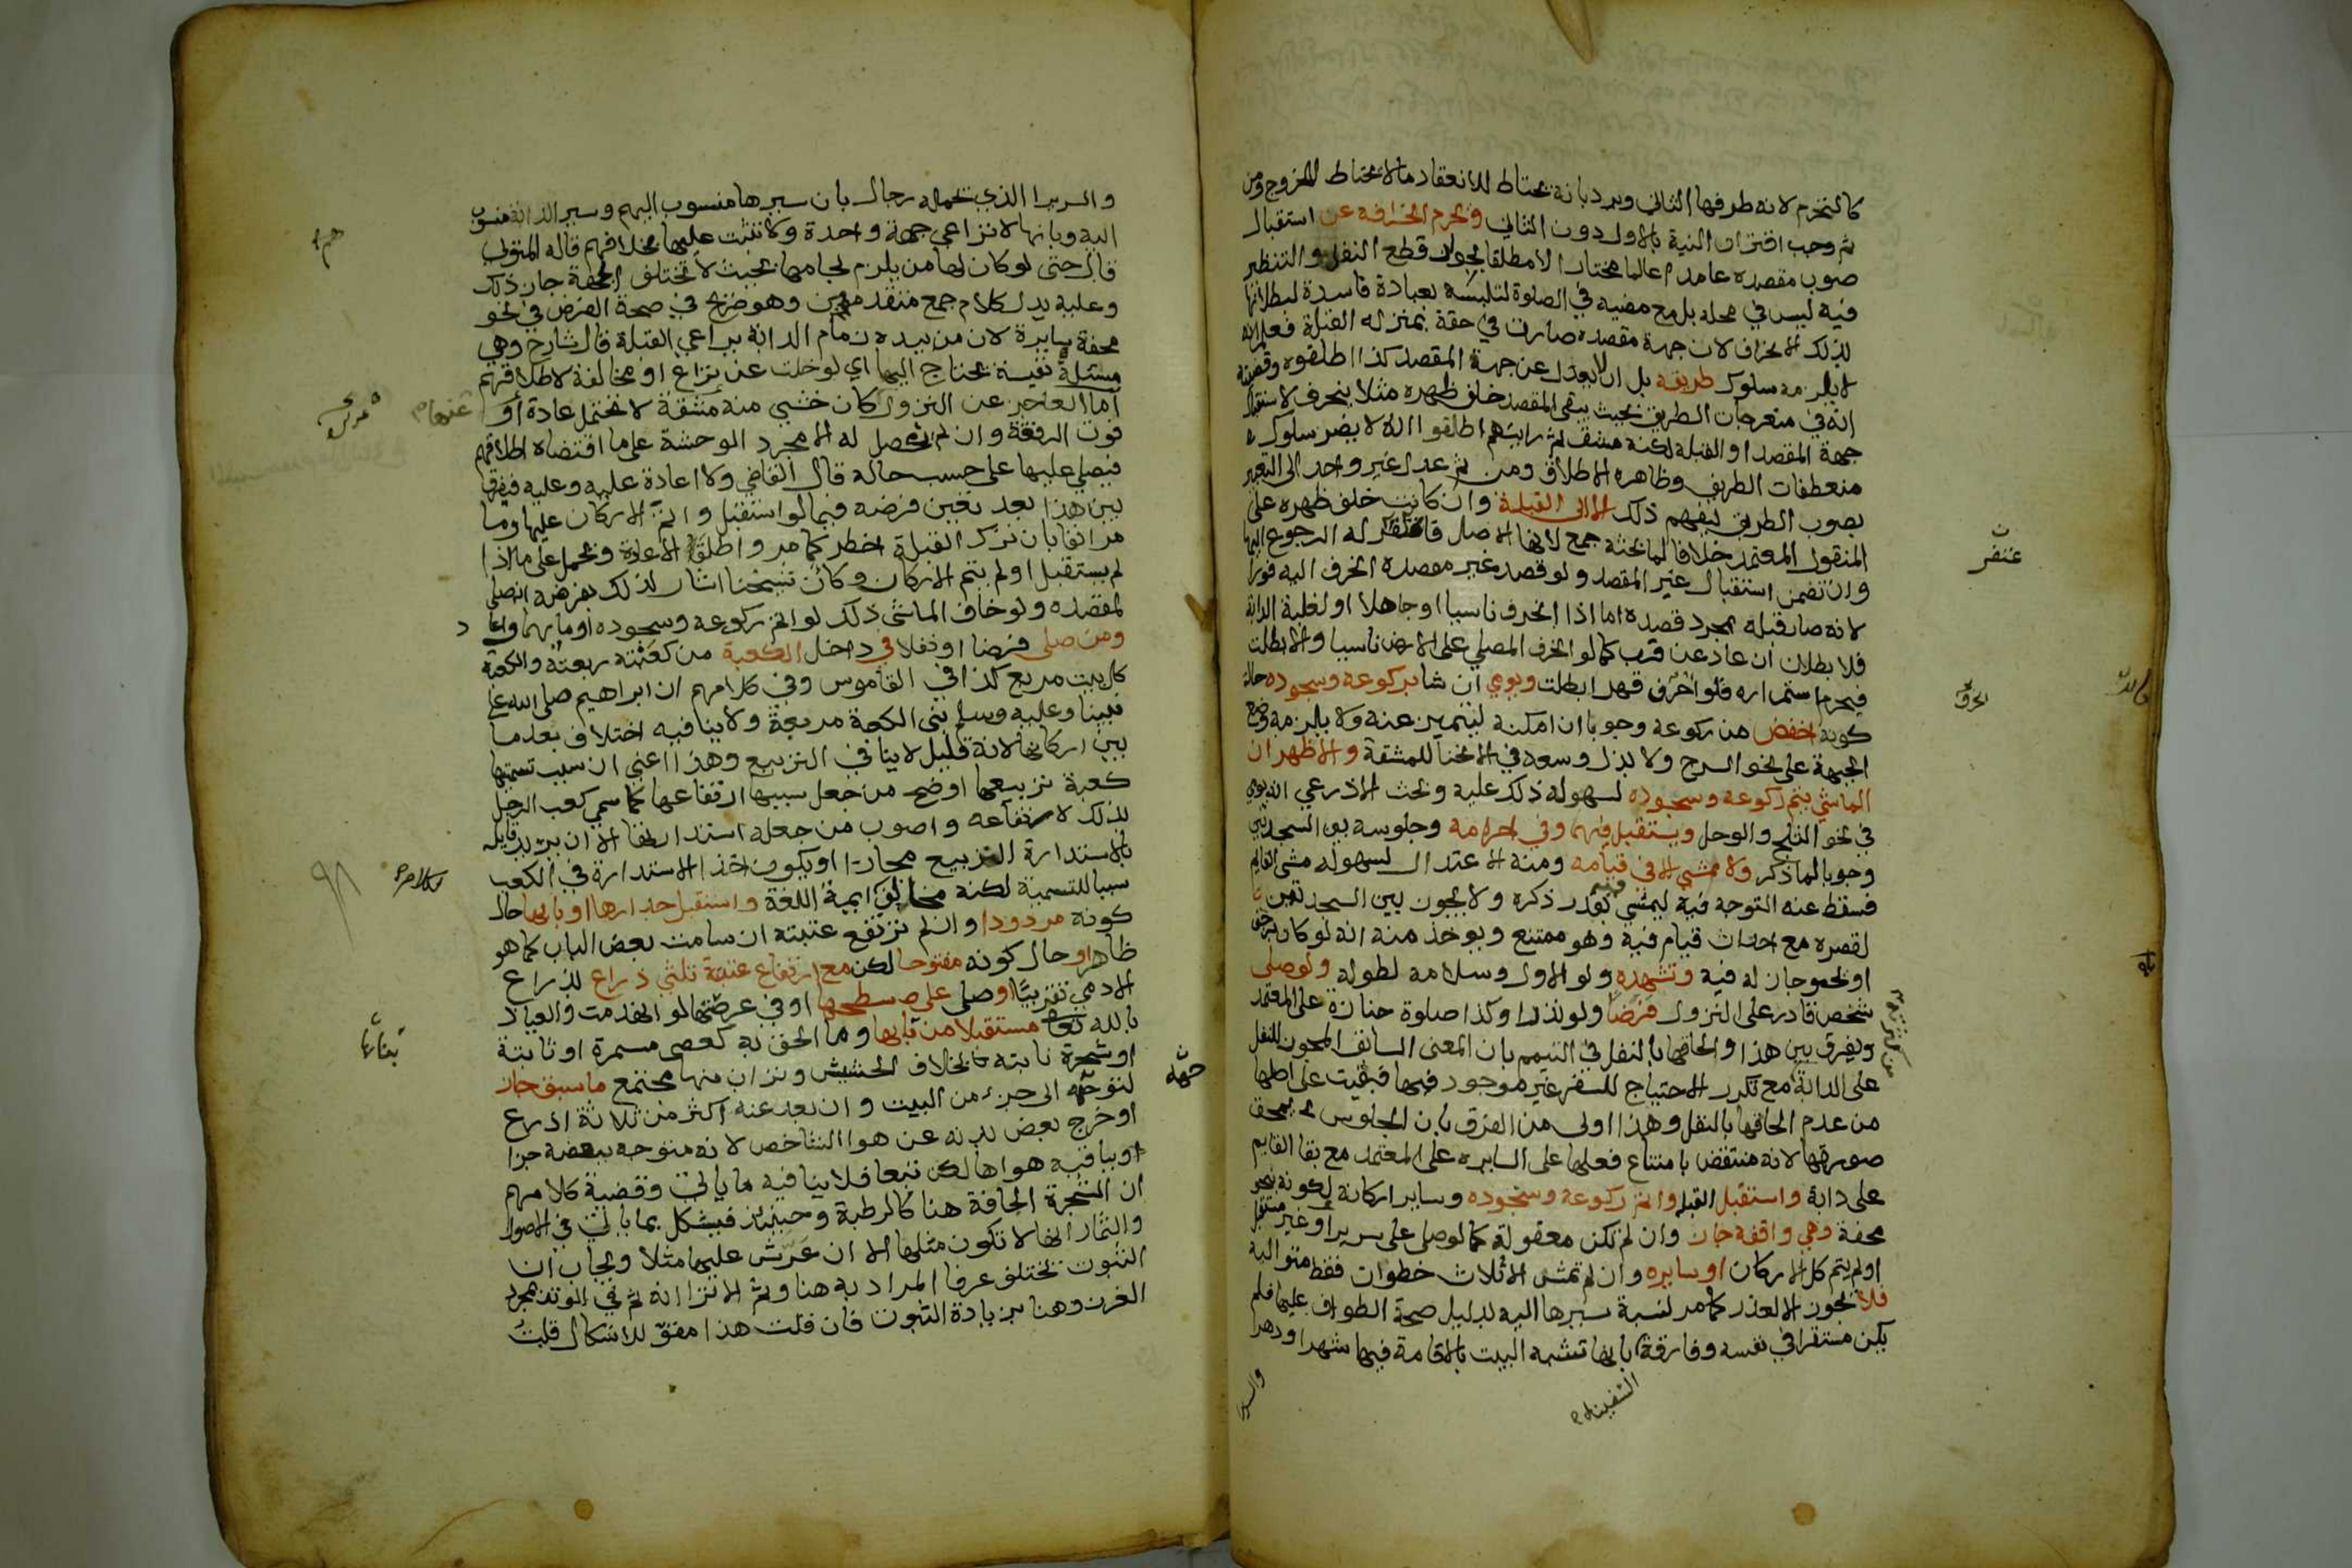 كالتحرم لانه طرفها الثاني ويرد بانه يحتاط للانعقاد ما لا يحتاط للخروج ومن
ثم وجب اقتران النية بالاول دون الثاني ويحرم انحرافه عن استقبال
صوب مقصده عامدا عالما مختارا لا مطلقا لجواز قطع النفل والتنظير
فيه ليس في محله بل مع مضيه في الصلوة لتلبسه بعبادة فاسدة لبطلانها
بذلك الانحراف لان جهة مقصده صارت في حقه بمنزلة القبلة فعلم انه
لا يلزمه سلوك طريقه بل ان لا يعدل عن جهة المقصد كذا اطلقوه وقضيته
انه في منعرجات الطريق بحيث يبقى المقصد خلف ظهره مثلا ينحرف لاستقبال
جهة المقصد او القبلة لكنه مشق ثم رايتهم اطلقوا انه لا يضر سلوك
منعطفات الطريق وظاهره الاطلاق ومن ثم عدل غير واحد الى التعبير
بصوب الطريق ليفهم ذلك الا الى القبلة وان كانت خلف ظهره على
المنقول المعتمد خلافا لما بحثه جمع لانها الاصل فاغتفر له الرجوع اليها
وان تضمن استقبال غير المقصد ولو قصد غير مقصده انحرف اليه فورا
لانه صار قبلة بمجرد قصده اما اذا انحرف ناسيا او جاهلا او لغلبة الدابة
فلا بطلان ان عاد عن قرب كما لو انحرف المصلي على الارض ناسيا والا بطلت
فيحرم استمراره فلو احرف قهرا بطلت ويومي ان شا بركوعه وسجوده حالة
كونه اخفض من ركوعه وجوبا ان امكنه ليتميز عنه ولا يلزمه وضع
الجبهة على نحو السرج ولا بذل وسعه في الانحنا للمشقة والاظهر ان
الماشي يتم ركوعه وسجوده لسهولة ذلك عليه وبحث الاذرعي انه يومي
في نحو الثلج والوحل ويستقبل فيهما وفي احرامه وجلوسه بين السجدتين
وجوبا لما ذكر ولا يمشي الا في قيامه ومنه الاعتدال لسهولة مشي القايم
فسقط عنه التوجه فيه ليمشي بقدر ذكره ولا يجوز بين السجدتين
لقصره مع احداث قيام فيه وهو ممتنع ويوخذ منه انه لو كان يزحف
او يحبو جاز له فيه وتشهده ولو الاول وسلامه لطوله ولو صلى
شخص قادر على النزول فرضا ولو نذرا وكذا صلوة جنازة على المعتمد
ويفرق بين هذا والحاقها بالنفل في التيمم بان المعنى السابق المجوز للنفل
على الدابة مع تكرر الاحتياج للسفر غير موجود فيها فبقيت على اصلها
من عدم الحاقها بالنفل وهذا اولى من الفرق بان الجلوس يمحق
صورتها لانه منتقض بامتناع فعلها على السايره على المعتمد مع بقا القايم
على دابة واستقبل القبلة واتم ركوعه وسجوده وساير اركانه لكونه بنحو
محفة وهي واقفه جاز وان لم تكن معقولة كما لو صلى على سرير او غير مستقبل
او لم يتم كل الاركان او سايره وان لم تمش الا ثلاث خطوات فقط متواليه
فلا يجوز الا لعذر كما مر لنسبة سيرها اليه بدليل صحة الطواف عليها فلم
يكن مستقرا في نفسه وفارقه بانها تشبه البيت بالاقامة فيها شهرا ودهرا
السفينة
والسرير
والسرير الذي تحمله رجال بان سيرها منسوب اليهم وسير الدابة منسوب
اليه وبانها لا تراعي جهة واحدة ولا تثبت عليها بخلافهم قاله المتولي
قال حتى لو كان لها من يلزم لجامها بحيث لا تختلف الجهة جاز ذلك
وعليه يدل كلام جمع متقدمين وهو صريح في صحة الفرض في نحو
محفة سايرة لان من بيده زمام الدابة يراعي القبلة قال شارح وهي
مسئلة نفيسة يحتاج اليها اي لو خلت عن نزاع او مخالفة لاطلاقهم
اما العاجز عن النزول كان خشي منه مشقة لا تحتمل عادة او
فوت الرفقة وان لم يحصل له الا مجرد الوحشة على ما اقتضاه اطلاقهم
فيصلي عليها على حسب حاله قال القاضي ولا اعادة عليه وعليه فيفرق
بين هذا بعد تعين فرضه فيما لو استقبل واتم الاركان عليها وما
مر انفا بان ترك القبلة اخطر كما مر واطلق الاعادة ويحمل على ما اذا
لم يستقبل او لم يتم الاركان وكان شيخنا اشار لذلك بفرضه انه صلى
لمقصده ولو خاف الماشي ذلك لو اتم ركوعه وسجوده اوما بهما واعاد
ومن صلى فرضا او نفلا في داخل الكعبة من كعبته ربعته والكعبة
كل بيت مربع كذا في القاموس وفي كلامهم ان ابراهيم صلى الله على
نبينا وعليه وسلم بنى الكعبة مربعة ولا ينافيه اختلاف بعد ما
بين اركانها لانه قليل لا ينافي التربيع وهذا اعني ان سبب تسميتها
كعبة تربيعها اوضح من جعل سببها ارتفاعها كما سمي كعب الرجل
بذلك لارتفاعه واصوب من جعله استدارتها الا ان يريد قايله
بالاستدارة التربيع مجازا او يكون اخذ الاستدارة في الكعب
سببا للتسمية لكنه مخالف لايمة اللغة واستقبل جدارها او بابها حال
كونه مردودا وان لم ترتفع عتبته ان سامت بعض الباب كما هو
ظاهر او حال كونه مفتوحا لكن مع ارتفاع عتبته ثلثي ذراع لذراع
الادمي تقريبا او صلى على سطحها او في عرصتها لو انهدمت والعياذ
بالله تعالى مستقبلا من بابها وما الحق به كعصى مسمرة او ثابتة
او شجرة نابته بخلاف الحشيش وتراب منها مجتمع ما سبق جاز
لتوجهه الى جزء من البيت وان بعد عنه اكثر من ثلاثة اذرع
او خرج بعض بدنه عن هوا الشاخص لانه متوجه ببعضه جزا
وبباقيه هواها لكن تبعا فلا ينافيه ما ياتي وقضية كلامهم
ان الشجرة الجافة هنا كالرطبة وحينئذ فيشكل بما ياتي في الاصول
والثمار انها لا تكون مثلها الا ان عرش عليها مثلا ويجاب ان
الثبوت يختلف عرفا المراد به هنا وثم الا ترا انه ثم في الوتد مجرد
الغرز وهنا بزيادة الثبوت فان قلت هذا مقو للاشكال قلت